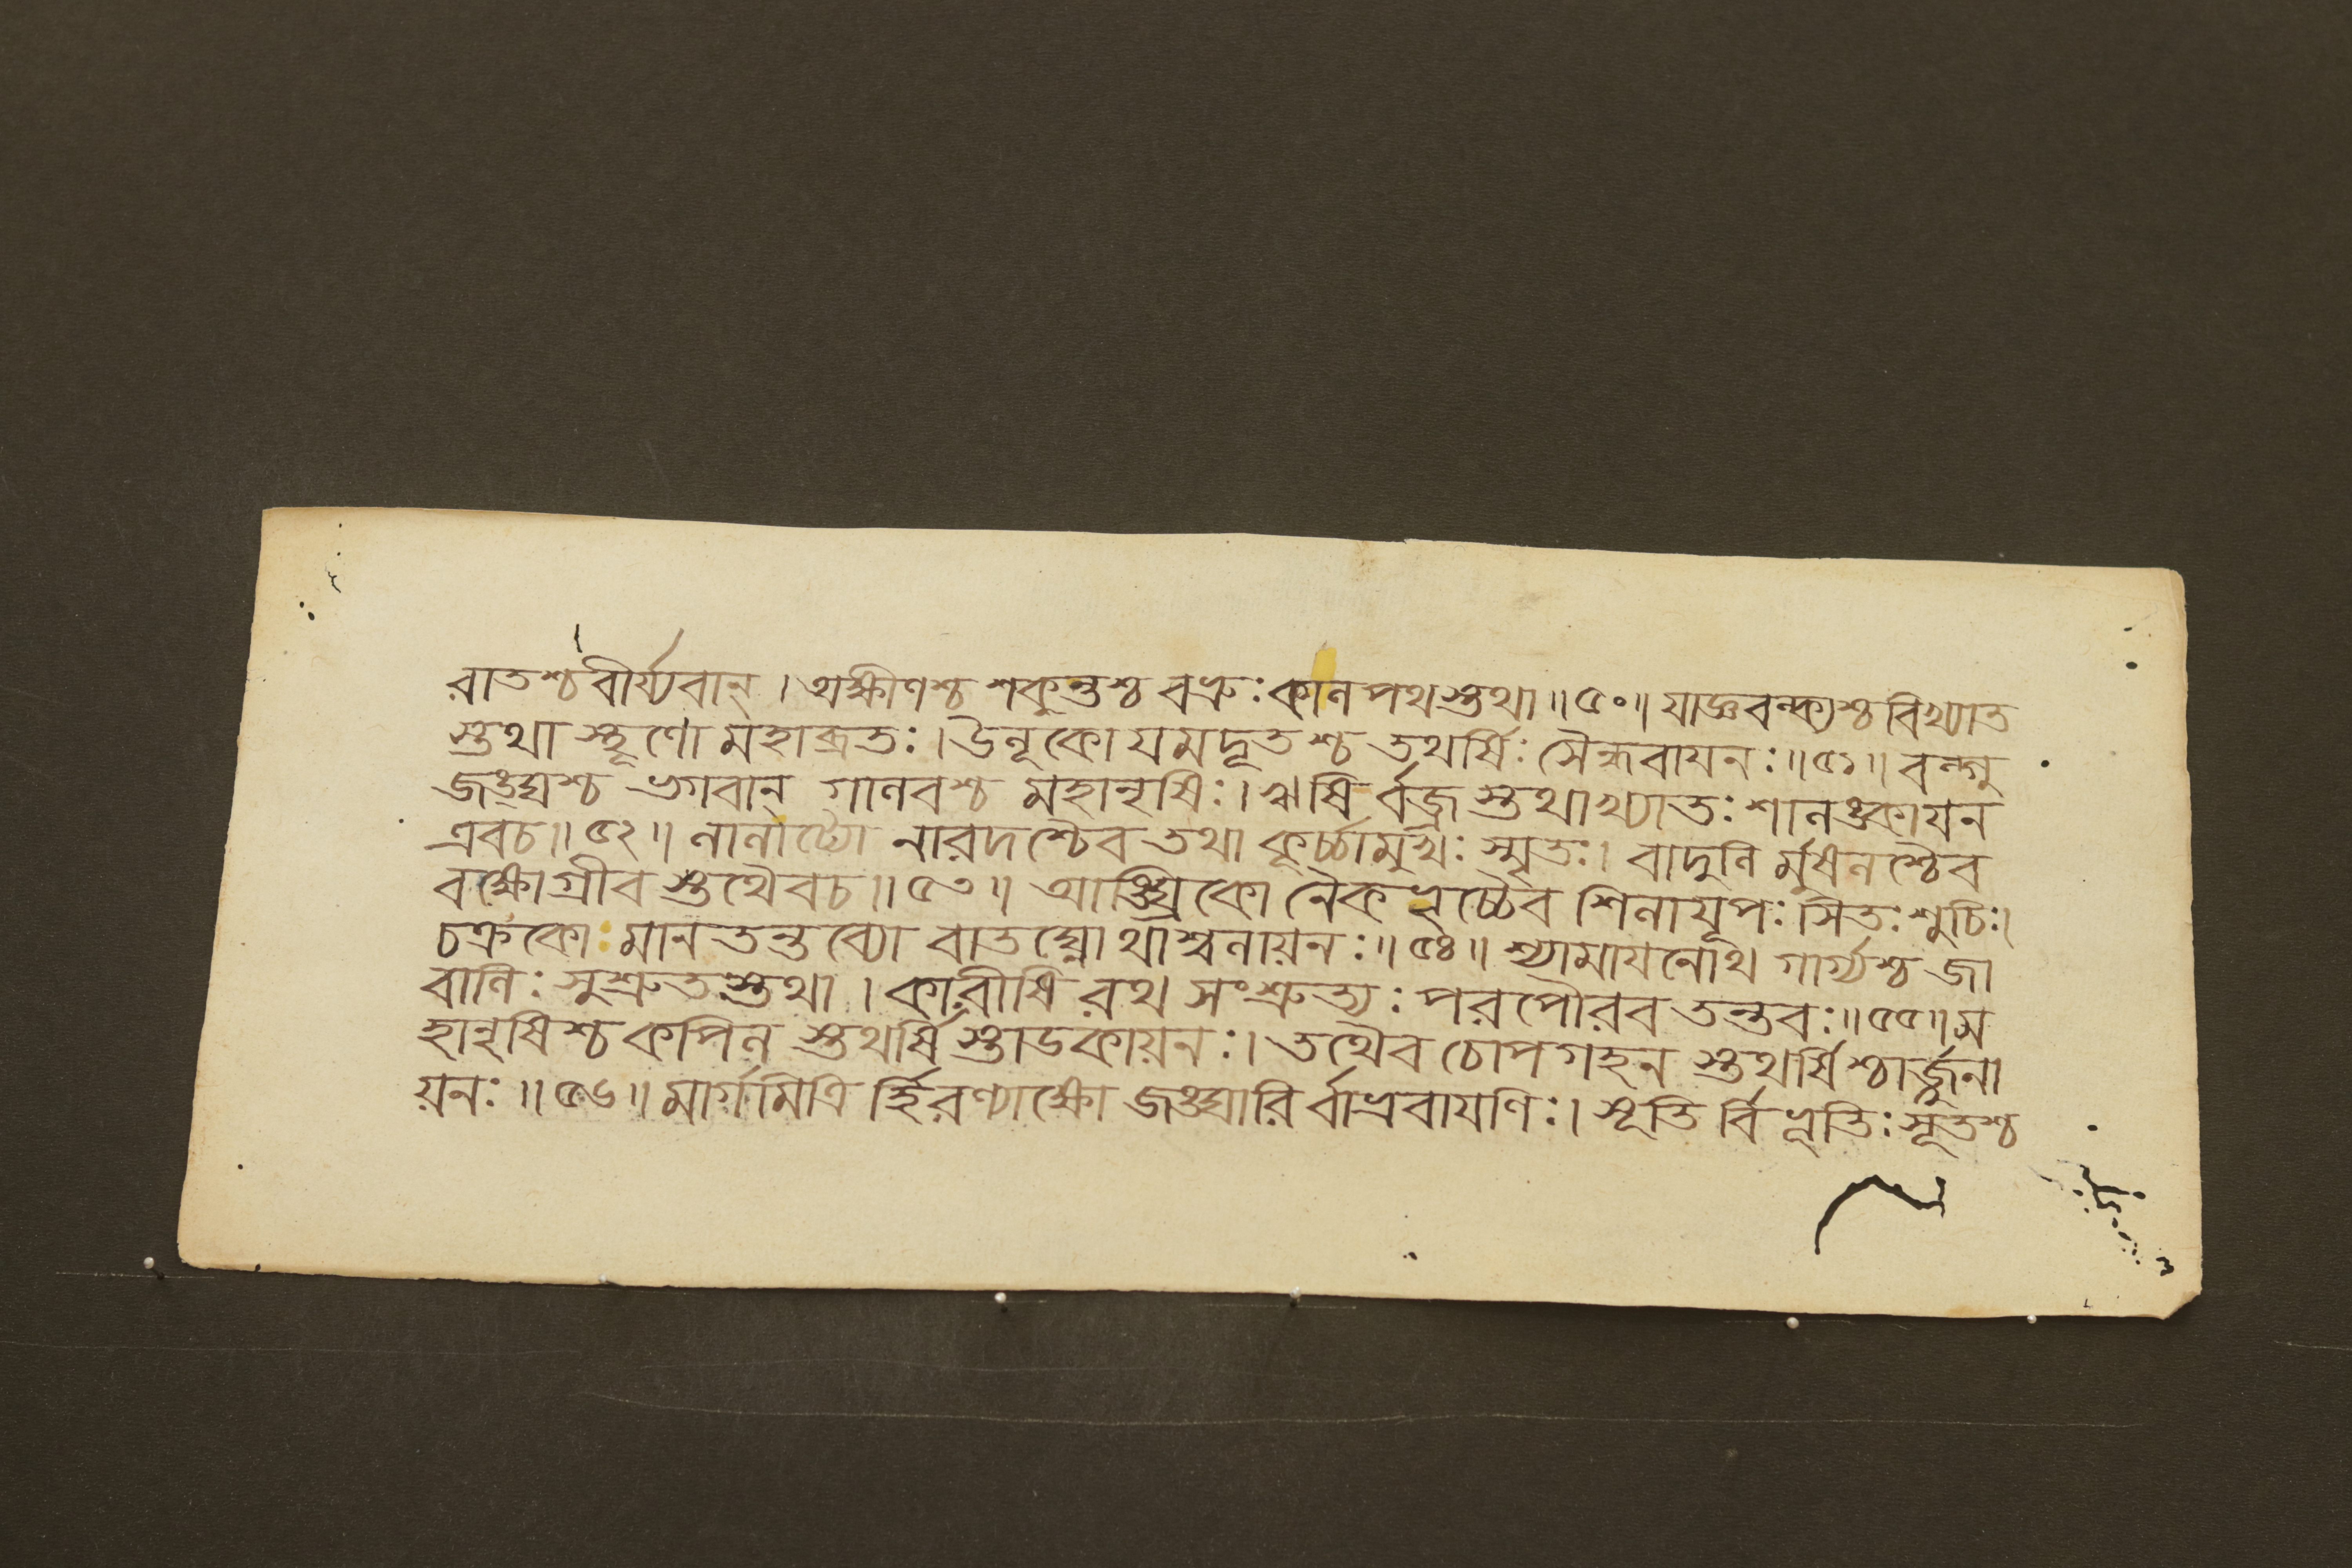 রাতশ্চ বীর্য্যবান্ । অক্ষীণশ্চ শকুন্তশ্চ বভ্রুঃ কালপথস্তথা ॥ ৫০ ॥ যাজ্ঞবল্ক্যশ্চ বিখ্যাত
স্তথা স্থূণো মহাব্রতঃ । উলূকো যমদূতশ্চ তথর্ষিঃ সৈন্ধবায়নঃ ॥ ৫১ ॥ বল্গু
জঙ্ঘশ্চ ভগবান্ গালবশ্চ মহানৃষিঃ । ঋষি র্বজ্র স্তথাখ্যাতঃ শালঙ্কায়ন
এবচ ॥ ৫২ ॥ লালাট্যো নারদশ্চৈব তথা কূর্চ্চামুখঃ স্মৃতঃ । বাদুলি র্মুষলশ্চৈব
বক্ষোগ্রীব স্তথৈবচ ॥ ৫৩ ॥ আঙ্ঘ্রিকো নৈকভৃচ্চৈব শিলাযূপঃ সিতঃ শুচিঃ ।
চক্রকো মালতন্তব্যো বাতঘ্নোথাশ্বলায়নঃ ॥ ৫৪ ॥ শ্যামায়নোথ গার্গ্যশ্চ জা
বালিঃ সুশ্রুতস্তথা । কারীষি রথ সংশ্রুত্যঃ পরপৌরব তন্তবঃ ॥ ৫৫ ॥ ম
হানৃষিশ্চ কপিল স্তথর্ষি স্তাডকায়নঃ । তথৈব চোপগহন স্তথর্ষিশ্চার্জ্জুনা
য়নঃ ॥ ৫৬ ॥ মার্গমিত্রি র্হিরণ্যাক্ষো জঙ্ঘারি র্বাভ্রবায়ণিঃ । সূতি র্বিভূতিঃ সূতশ্চ